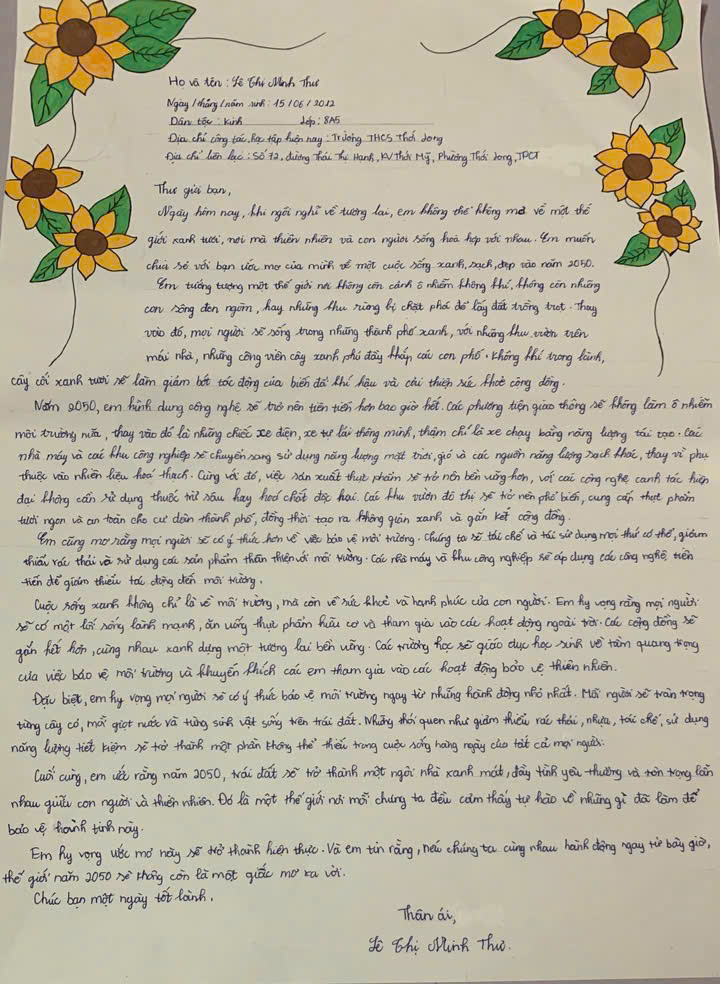 Họ và tên : Lê Thị Minh Thư
Ngày / tháng / năm sinh : 15 / 06 / 2012
Dân tộc : Kinh Lớp : 8A5
Địa chỉ công tác, học tập hiện nay : Trường THCS Thới Long
Địa chỉ liên lạc : Số 72, đường Thái Thị Hạnh, KV Thới Mỹ, Phường Thới Long, TPCT
Thư gửi bạn,
Ngày hôm nay, khi ngồi nghĩ về tương lai, em không thể không mơ về một thế
giới xanh tươi, nơi mà thiên nhiên và con người sống hoà hợp với nhau. Em muốn
chia sẻ với bạn ước mơ của mình về một cuộc sống xanh, sạch, đẹp vào năm 2050.
Em tưởng tượng một thế giới nơi không còn cảnh ô nhiễm không khí, không còn những
con sông đen ngòm, hay những khu rừng bị chặt phá để lấy đất trồng trọt. Thay
vào đó, mọi người sẽ sống trong những thành phố xanh, với những khu vườn trên
mái nhà, những công viên cây xanh phủ đầy khắp các con phố. Không khí trong lành,
cây cối xanh tươi sẽ làm giảm bớt tác động của biến đổi khí hậu và cải thiện sức khoẻ cộng đồng.
Năm 2050, em hình dung công nghệ sẽ trở nên tiên tiến hơn bao giờ hết. Các phương tiện giao thông sẽ không làm ô nhiễm
môi trường nữa, thay vào đó là những chiếc xe điện, xe tự lái thông minh, thậm chí là xe chạy bằng năng lượng tái tạo. Các
nhà máy và các khu công nghiệp sẽ chuyển sang sử dụng năng lượng mặt trời, gió và các nguồn năng lượng sạch khác, thay vì phụ
thuộc vào nhiên liệu hoá thạch. Cùng với đó, việc sản xuất thực phẩm sẽ trở nên bền vững hơn, với các công nghệ canh tác hiện
đại không cần sử dụng thuốc trừ sâu hay hoá chất độc hại. Các khu vườn đô thị sẽ trở nên phổ biến, cung cấp thực phẩm
tươi ngon và an toàn cho cư dân thành phố, đồng thời tạo ra không gian xanh và gắn kết cộng đồng.
Em cũng mơ rằng mọi người sẽ có ý thức hơn về việc bảo vệ môi trường. Chúng ta sẽ tái chế và tái sử dụng mọi thứ có thể, giảm
thiểu rác thải và sử dụng các sản phẩm thân thiện với môi trường. Các nhà máy và khu công nghiệp sẽ áp dụng các công nghệ tiên
tiến để giảm thiểu tác động đến môi trường.
Cuộc sống xanh không chỉ là về môi trường, mà còn về sức khoẻ và hạnh phúc của con người. Em hy vọng rằng mọi người
sẽ có một lối sống lành mạnh, ăn uống thực phẩm hữu cơ và tham gia vào các hoạt động ngoài trời. Các cộng đồng sẽ
gắn kết hơn, cùng nhau xanh dựng một tương lai bền vững. Các trường học sẽ giáo dục học sinh về tầm quang trọng
của việc bảo vệ môi trường và khuyến khích các em tham gia vào các hoạt động bảo vệ thiên nhiên.
Đặc biệt, em hy vọng mọi người sẽ có ý thức bảo vệ môi trường ngay từ những hành động nhỏ nhất. Mỗi người sẽ trân trọng
từng cây cỏ, mỗi giọt nước và từng sinh vật sống trên trái đất. Những thói quen như giảm thiểu rác thải, nhựa, tái chế, sử dụng
năng lượng tiết kiệm sẽ trở thành một phần không thể thiếu trong cuộc sống hàng ngày của tất cả mọi người.
Cuối cùng, em ước rằng năm 2050, trái đất sẽ trở thành một ngôi nhà xanh mát, đầy tình yêu thương và tôn trọng lẫn
nhau giữa con người và thiên nhiên. Đó là một thế giới nơi mỗi chúng ta đều cảm thấy tự hào về những gì đã làm để
bảo vệ hành tinh này.
Em hy vọng ước mơ này sẽ trở thành hiện thực. Và em tin rằng, nếu chúng ta cùng nhau hành động ngay từ bây giờ,
thế giới năm 2050 sẽ không còn là một giấc mơ xa vời.
Chúc bạn một ngày tốt lành.
Thân ái,
Lê Thị Minh Thư.